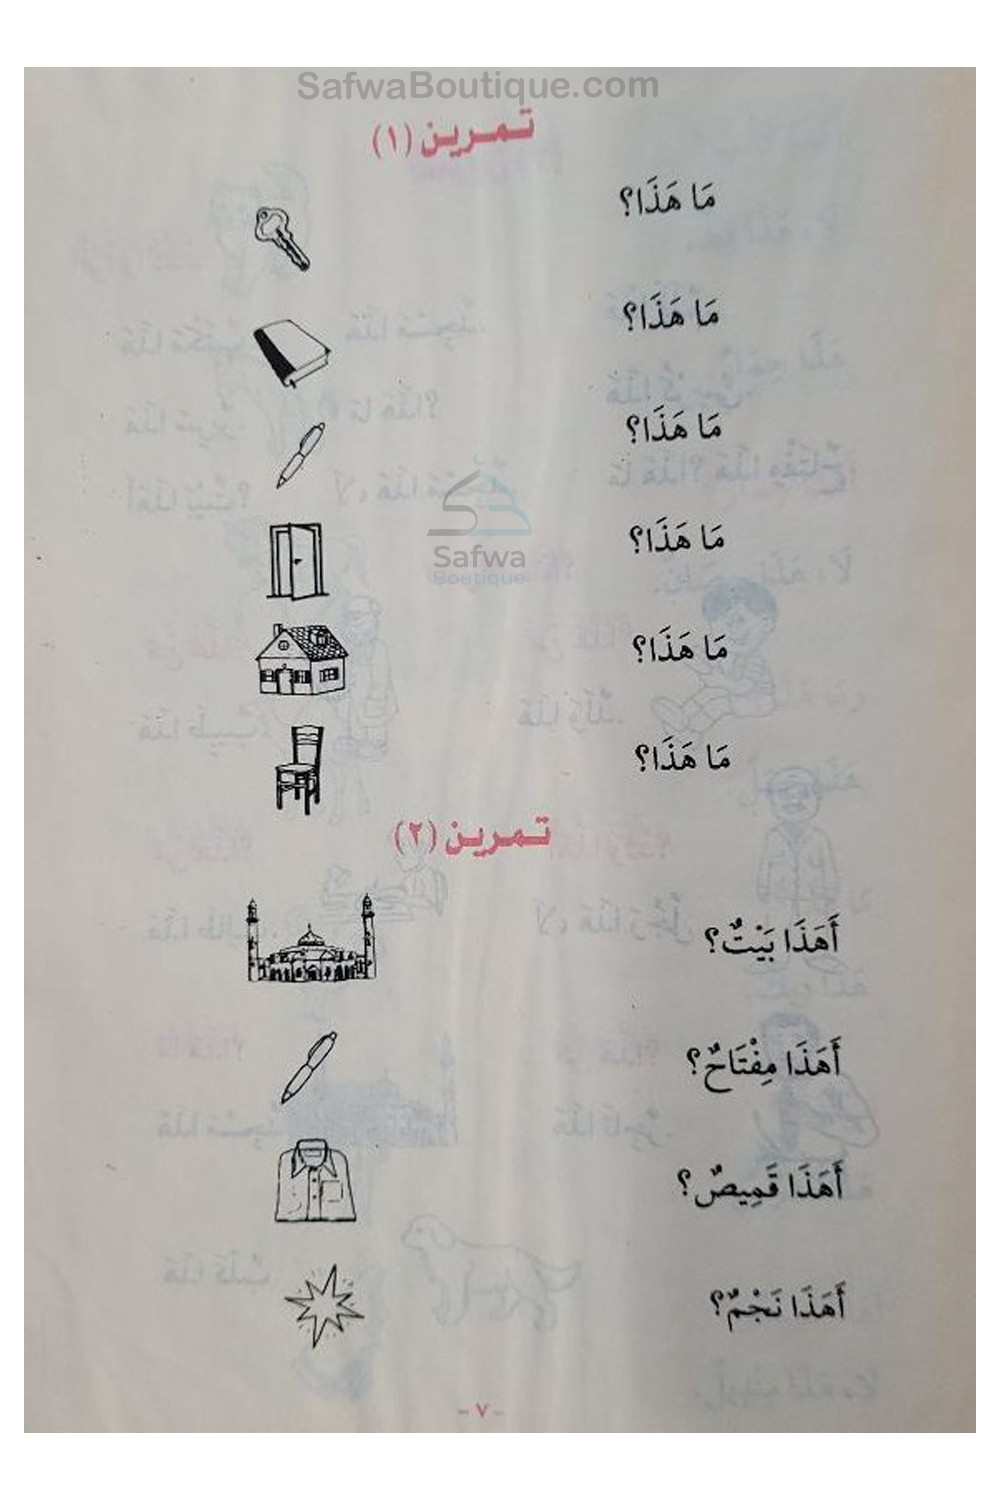 SafwaBoutique.com
تمرين (١)
مَا هَذَا؟
مَا هَذَا؟
مَا هَذَا؟
Safwa
Boetique
مَا هَذَا؟
مَا هَذَا؟
مَا هَذَا؟
تمرين (٢)
أَهَذَا بَيْتٌ؟
أَهَذَا مِفْتَاحٌ؟
أَهَذَا قَمِيصٌ؟
أَهَذَا نَجْمٌ؟
- ٧ -